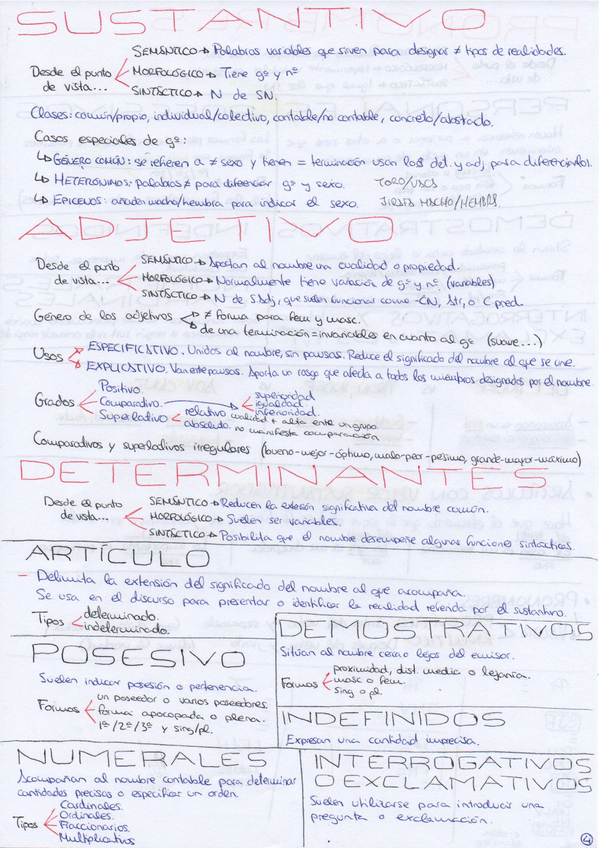 SUSTANTIVO
SEMÁNTICO → Palabras variables que sirven para designar ≠ tipos de realidades.
Desde el punto de vista... MORFOLÓGICO → Tiene gº y nº
SINTÁCTICO → N de SN.
Clases: común/propio, individual/colectivo, contable/no contable, concreto/abstracto.
Casos especiales de gº:
↳ GÉNERO COMÚN: se refieren a ≠ sexo y tienen = terminación usan los det. y adj. para diferenciarlos.
↳ HETERÓNIMOS: palabras ≠ para diferenciar gº y sexo. TORO/VACA
↳ EPICENOS: añade macho/hembra para indicar el sexo. JIRAFA MACHO/HEMBRA.
ADJETIVO
SEMÁNTICO → Aportan al nombre una cualidad o propiedad.
Desde el punto de vista... MORFOLÓGICO → Normalmente tiene variación de gº y nº. (variables)
SINTÁCTICO → N de SAdj, que suelen funcionar como CN, Atr, o C pred.
Género de los adjetivos → ≠ forma para fem y masc.
→ de una terminación = invariables en cuanto al gº (suave...)
Usos ESPECIFICATIVO. Unidos al nombre, sin pausas. Reduce el significado del nombre al que se une.
EXPLICATIVO. Van entre pausas. Aporta un rasgo que afecta a todos los miembros designados por el nombre.
Positivo.
Grados Comparativo. → superioridad igualdad inferioridad.
Superlativo relativo cualidad + alta entre un grupo.
absoluto. no manifiesta comparación
Comparativos y superlativos irregulares (bueno-mejor-óptimo, malo-peor-pésimo, grande-mayor-máximo)
DETERMINANTES
SEMÁNTICO → Reducen la extensión significativa del nombre común.
Desde el punto de vista... MORFOLÓGICO → Suelen ser variables.
SINTÁCTICO → Posibilita que el nombre desempeñe algunas funciones sintácticas.
ARTÍCULO
– Delimita la extensión del significado del nombre al que acompaña.
Se usa en el discurso para presentar o identificar la realidad referida por el sustantivo.
Tipos determinado.
indeterminado.
POSESIVO
Suelen indicar posesión o pertenencia.
un poseedor o varios poseedores.
Formas forma apocopada o plena.
1ª/2ª/3ª y sing/pl.
DEMOSTRATIVOS
Sitúan al nombre cerca o lejos del emisor.
proximidad, dist. media o lejanía.
Formas masc o fem.
sing o pl.
INDEFINIDOS
Expresan una cantidad imprecisa.
NUMERALES
Acompañan al nombre contable para determinar
cantidades precisas o especificar un orden.
Cardinales.
Ordinales.
Tipos Fraccionarios.
Multiplicativos
INTERROGATIVOS
O EXCLAMATIVOS
Suelen utilizarse para introducir una
pregunta o exclamación.
4